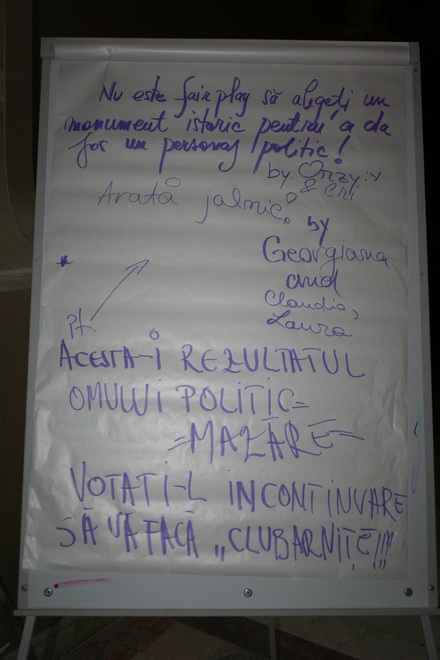 Nu este fair play să alegeți un
monument istoric pentru a da
jos un personaj politic!
by Onzy :y
& Cri
Arată jalnic!
by
Georgiana
and
Claudia,
Laura
Pt.
ACESTA-I REZULTATUL
OMULUI POLITIC=
=MAZĂRE=
VOTATI-L INCONTINVARE
SĂ VĂ FACĂ „CLUBARNIȚE"!!!